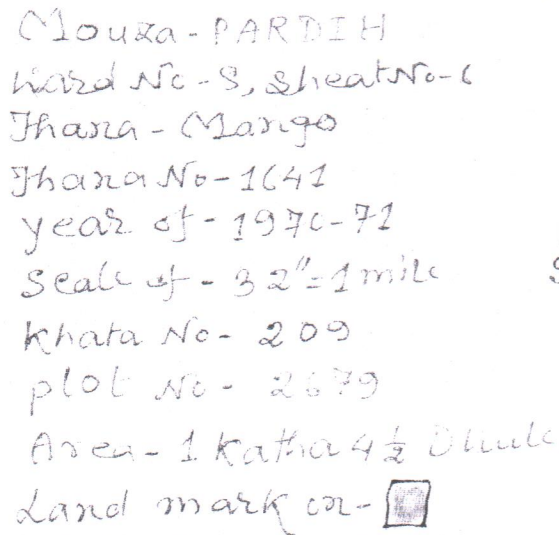 Mouza - PARDIH
Ward No - 8, Sheat No - 6
Thana - Mango
Thana No - 1641
year of - 1970-71
Scale of - 32" = 1 mile
Khata No - 209
plot No - 2679
Area - 1 Katha 4 ½ Dhule
Land mark on -